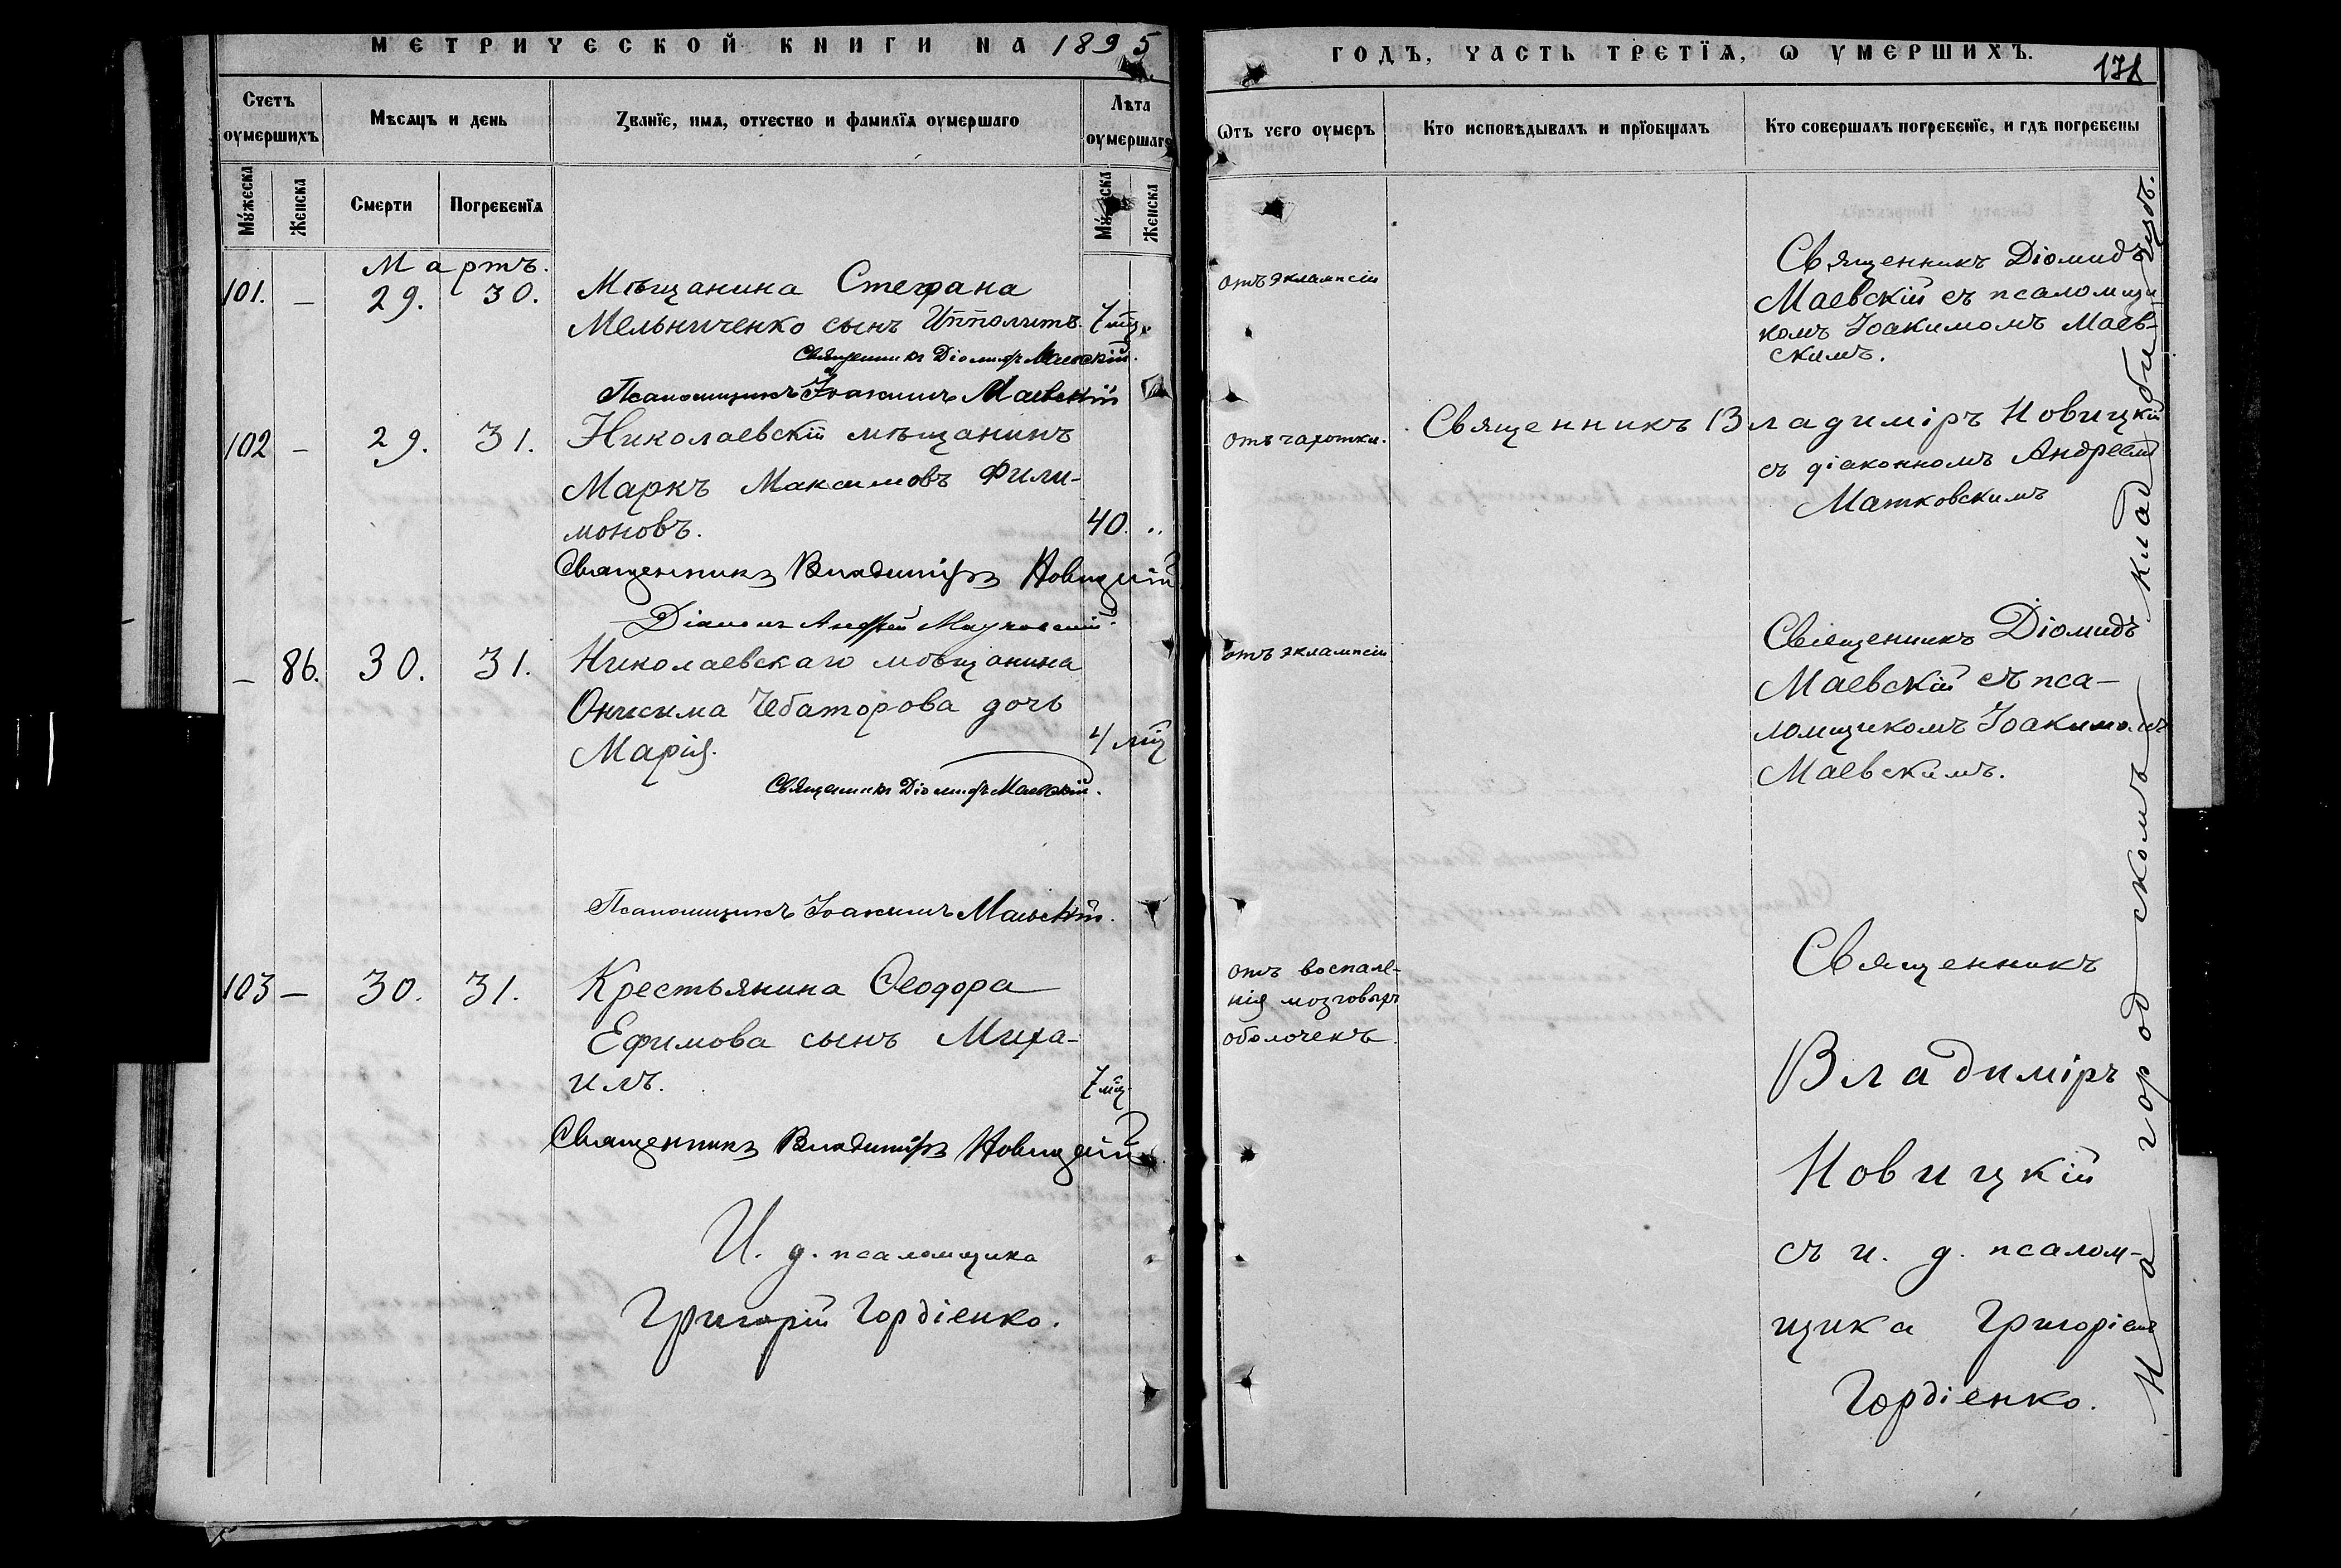 МЕТРИЧЕСКОЙ КНИГИ НА 1895
Счетъ оумершихъ
Мѣсяцъ и день
Званїе, имѧ, отчество и фамилїѧ оумершаго
Лѣта оумершаго
Мужеска
Женска
Смерти
Погребенїѧ
Мужеска
Женска
Мартъ.
101. — 29. 30. Мѣщанина Стефана
Мельниченко сынъ Ипполитъ. 7 мц.
Священникъ Діомидъ Маевскій.
Псаломщикъ Іоакимъ Маевскій
102 — 29. 31. Николаевскій мѣщанинъ
Маркъ Максимовъ Фили-
моновъ. 40. „
Священникъ Владиміръ Новицкій
Діаконъ Андрей Матковскій.
— 86. 30. 31. Николаевскаго мѣщанина
Онисима Чебаторова дочь
Марія. 4 мц
Священникъ Діомидъ Маевскій.
Псаломщикъ Іоакимъ Маевскій.
103 — 30. 31. Крестьянина Ѳеодора
Ефимова сынъ Миха-
илъ. 7 мц
Священникъ Владиміръ Новицкій.
И. д. псаломщика
Григорій Гордіенко.
ГОДЪ, ЧАСТЬ ТРЕТЇѦ, Ѡ УМЕРШИХЪ.
171
Ѡтъ чего оумеръ
Кто исповѣдывалъ и прїобщалъ
Кто совершалъ погребенїе, и гдѣ погребены
отъ эклампсіи
Священникъ Діомидъ
Маевскій съ псаломщи-
комъ Іоакимомъ Маев-
скимъ.
отъ чахотки. Священникъ Владиміръ Новицкій
съ діакономъ Андреемъ
Матковскимъ
отъ эклампсіи
Священникъ Діомидъ
Маевскій съ пса-
ломщикомъ Іоакимомъ
Маевскимъ.
отъ воспале-
нія мозговыхъ
оболочекъ
Священникъ
Владиміръ
Новицкій
съ и. д. псалом-
щика Григоріемъ
Гордіенко.
На городскомъ кладбищѣ.